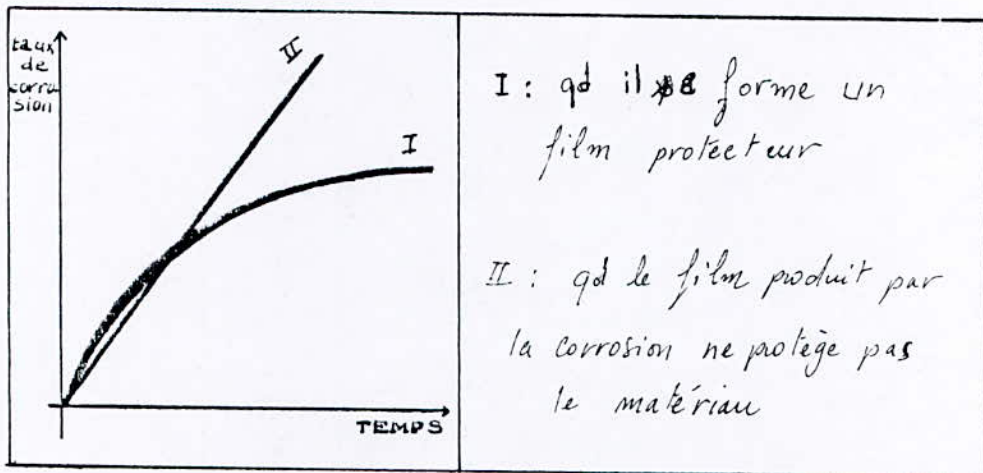 taux
de
corro
sion
II
I
TEMPS
I : qd il se forme un
film protecteur
II : qd le film produit par
la corrosion ne protège pas
le matériau